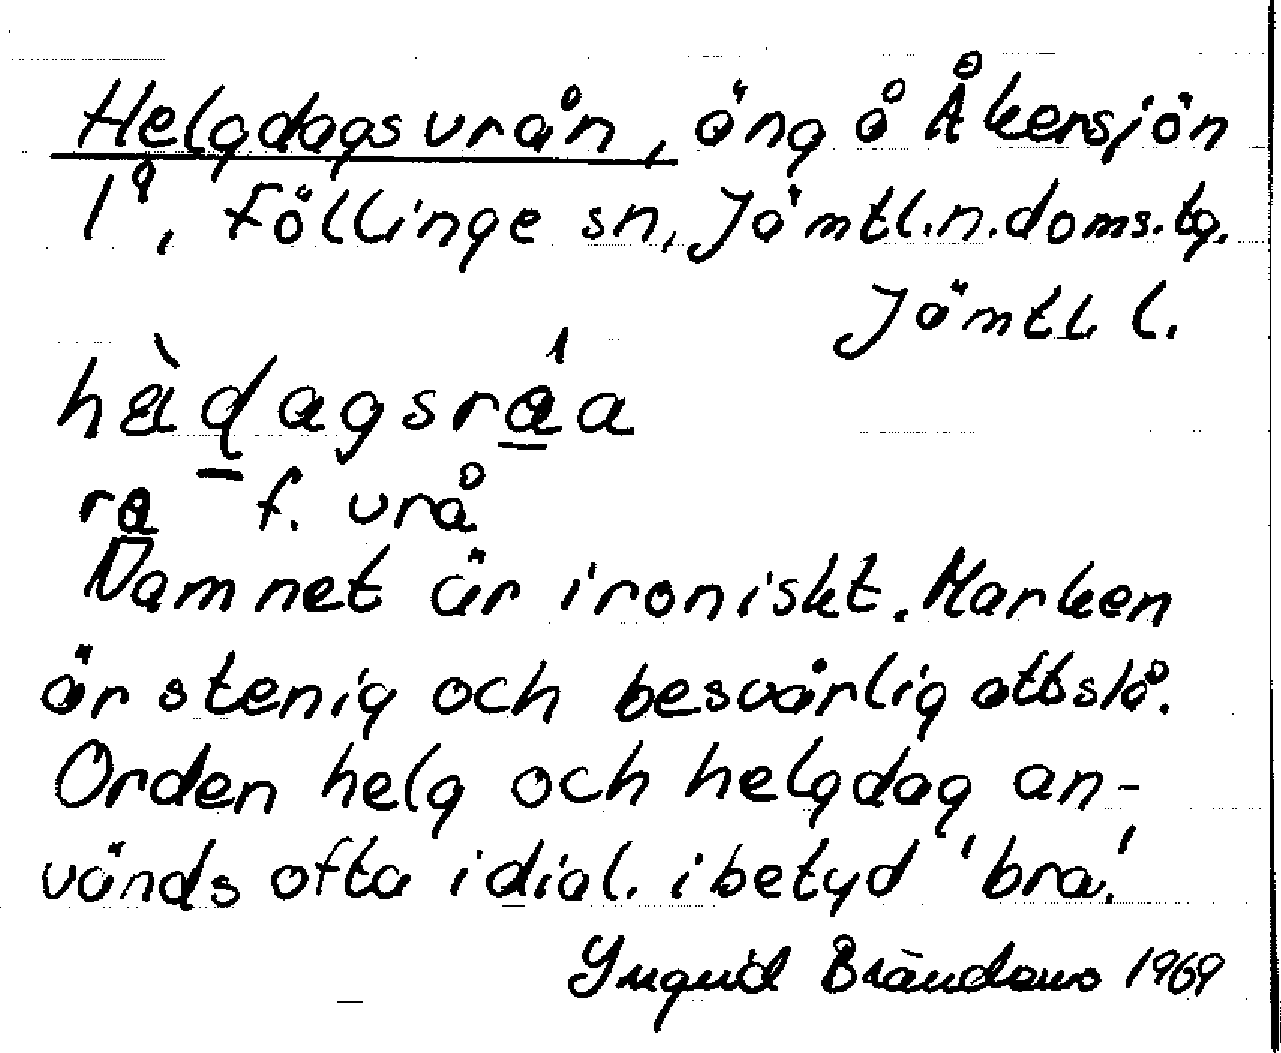 Helgdagsvrån, äng å Åkersjön
1⁹, Föllinge sn, Jämtl.n.doms.tg.
Jämtl. l.
hàdagsráa
ra f. vrå
Namnet är ironiskt. Marken
är stenig och besvärlig att slå.
Orden helg och helgdag an-
vänds ofta i dial. i betyd 'bra'.
Yngvild Brändans 1969